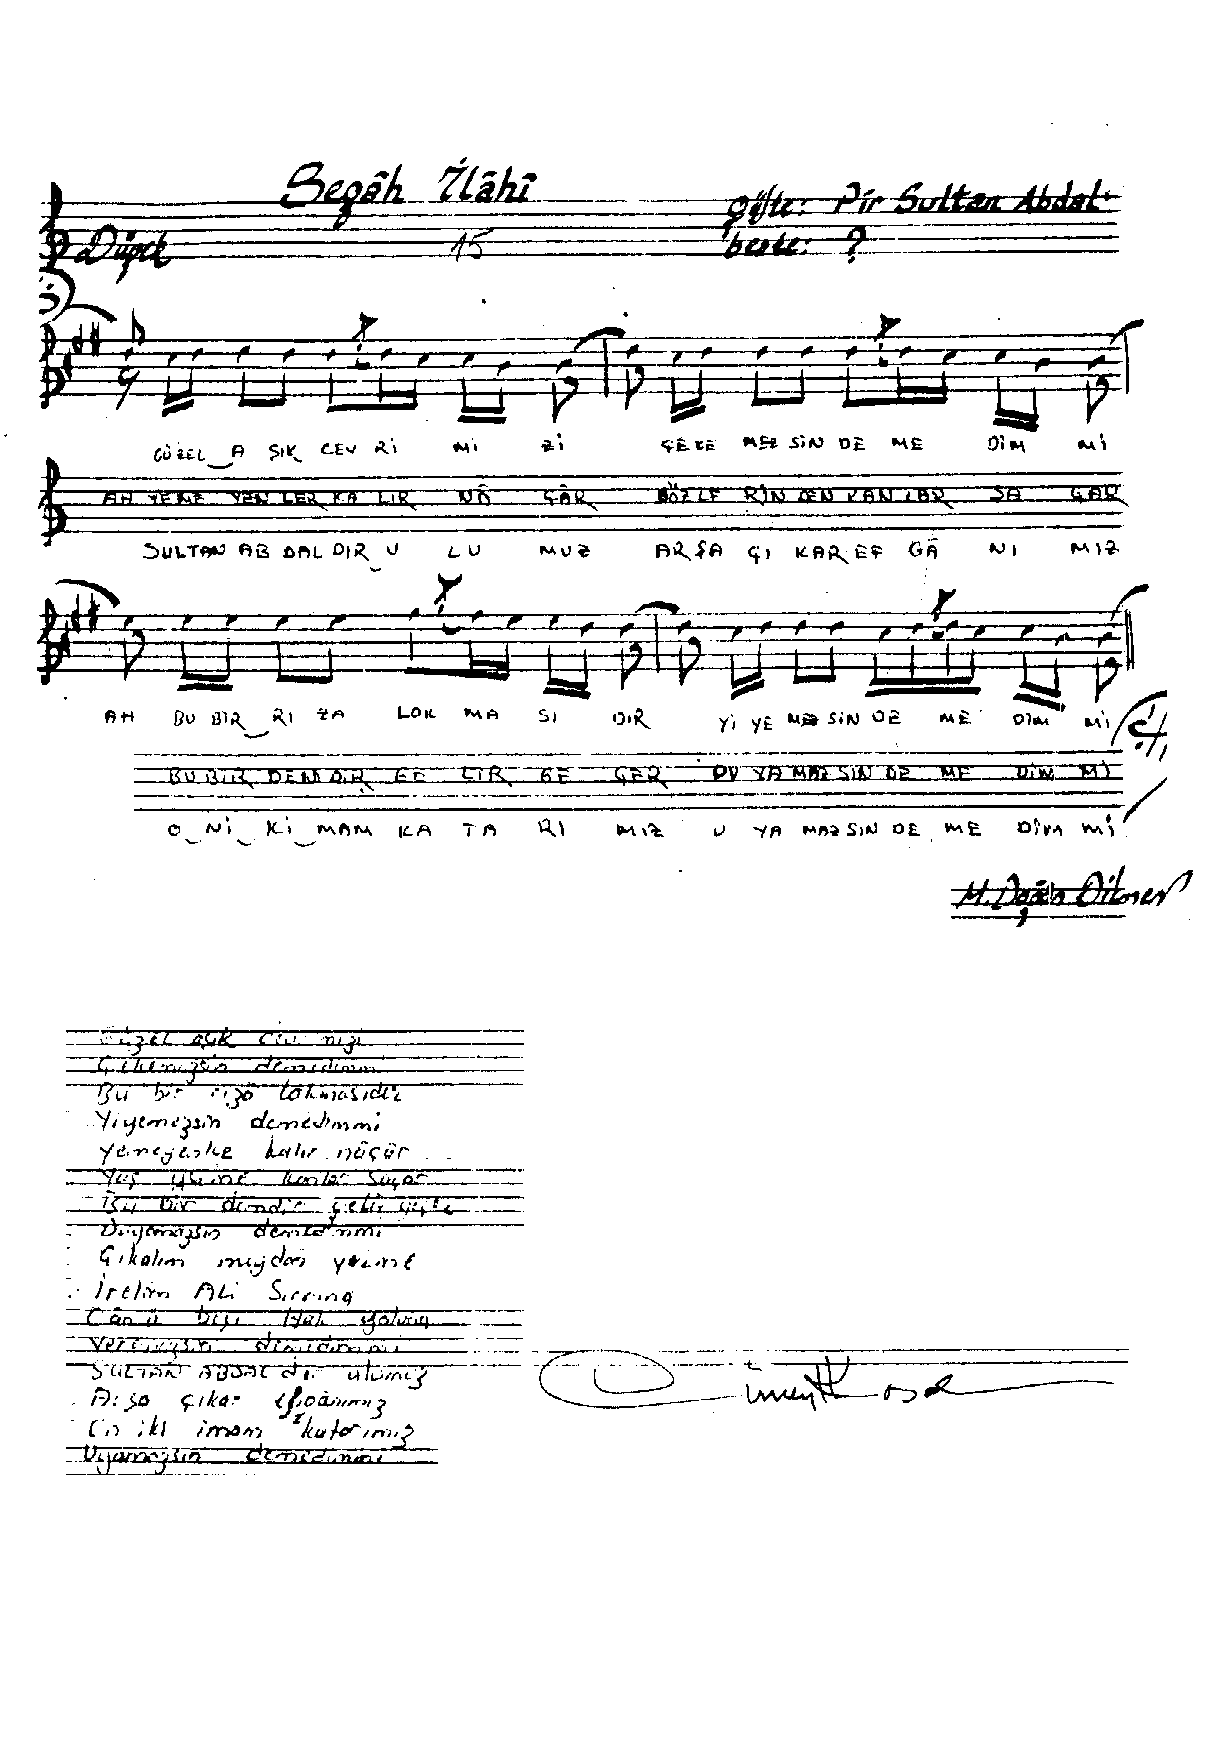 Segâh İlâhî
Güfte: Pir Sultan Abdal
Düyek 15 beste: ?
GÜZEL A ŞIK CEV Rİ Mİ Zİ ÇEKE MEZ SİN DE ME DİM Mİ
AH YEME YEN LER KA LIR NÂ ÇÂR GÖZLE RİN DEN KAN LAR SA ÇAR
SULTAN AB DAL DIR U LU MUZ ARŞA ÇI KAR EF GÂ NI MIZ
AH BU BİR RI ZA LOK MA SI DIR Yİ YE MEZ SİN DE ME DİM Mİ
BU BİR DEM DİR GE LİR GE ÇER DU YA MAZ SIN DE ME DİM Mİ
O Nİ Kİ MAM KA TA RI MIZ U YA MAZ SIN DE ME DİM Mİ
M. Doğan Dikmen
Güzel aşık
Çekemezsin demedimmi
Bu bir rıza lokmasıdır
Yiyemezsin demedimmi
kalır nâçâr
Yaş yerine kanlar saçar
Bu bir demdir gelir geçer
Duyamazsın demedimmi
Çıkalım meydan yerine
İrelim Ali Sırrına
Can ü başı Hak yoluna
Veremezsin demedimmi
SULTAN ABDAL dır ulumuz
Arşa çıkar efgânımız
On iki imam katarımız
Uyamazsın demedimmi
Cüneyt Kosal